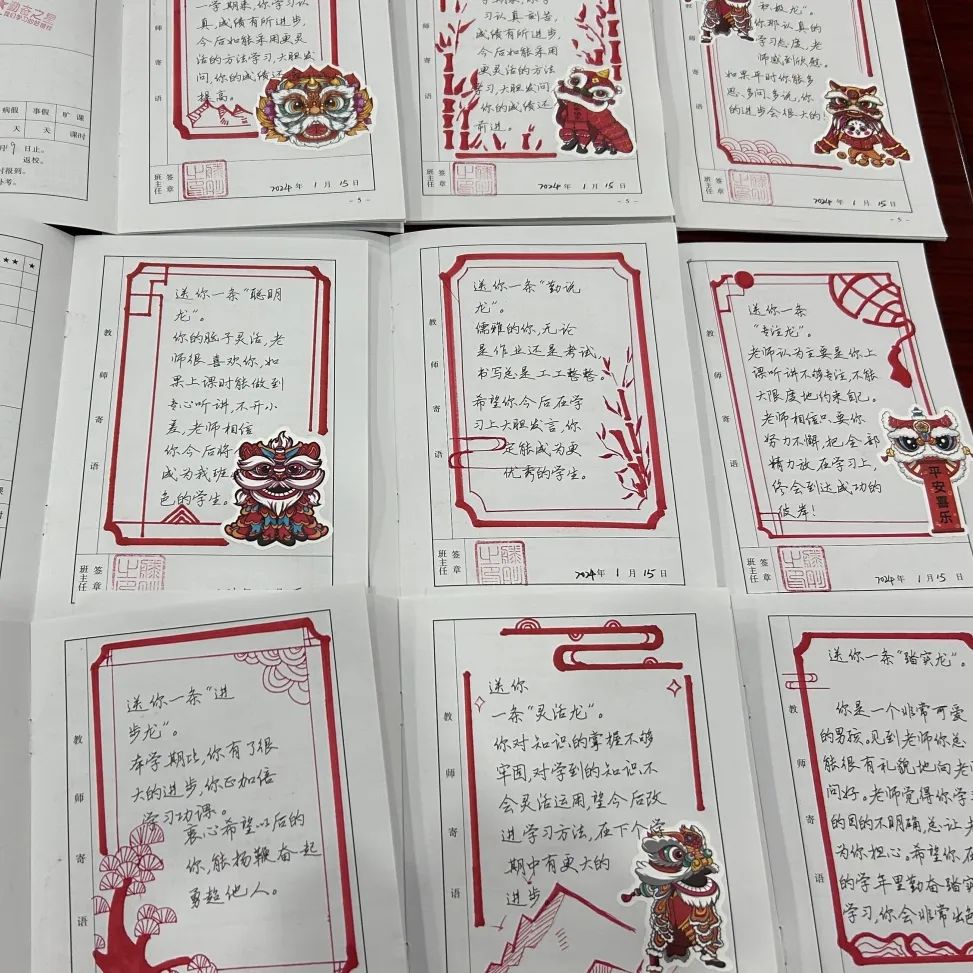 病假 事假 旷课
天 天 课时
9 日止。
返校。
师
寄
语
一学期来,你学习认
真,成绩有所进步,
今后如能采用更灵
活的方法学习,大胆发
问,你的成绩还
提高。
班主任
签章
2024年 1 月 15 日
- 5 -
师
寄
语
习认真刻苦,
成绩有所进步,
今后如能采用
更灵活的方法
学习,大胆发问
你的成绩还
前进。
班主任
签章
2024年 1 月 15 日
- 5 -
师
寄
语
积极龙”。
你那认真的
学习态度,老
师感到欣慰。
如果平时你能多
思、多问、多说,你
的进步会很大的!
班主任
签章
2024年 1 月 15 日
- 5 -
教
师
寄
语
送你一条“聪明
龙”。
你的脑子灵活,老
师很喜欢你,如
果上课时能做到
专心听讲,不开小
差,老师相信
你今后将
成为我班
色的学生。
班主任
签章
教
师
寄
语
送你一条“勤说
龙”。
儒雅的你,无论
是作业还是考试,
书写总是工工整整。
希望你今后在学
习上大胆发言,你
定能成为更
优秀的学生。
班主任
签章
2024年 1 月 15 日
教
师
寄
语
送你一条
“专注龙”。
老师认为主要是你上
课听讲不够专注,不能
大限度地约束自己。
老师相信只要你
努力不懈,把全部
精力放在学习上,
终会到达成功的
彼岸!
平安喜乐
班主任
签章
2024年 1 月 15 日
教
师
寄
语
送你一条“进
步龙”。
本学期比,你有了很
大的进步,你正加倍
学习功课。
衷心希望以后的
你,能扬鞭奋起
勇超他人。
教
师
寄
语
送你
一条“灵活龙”。
你对知识的掌握不够
牢固,对学到的知识不
会灵活运用,望今后改
进学习方法,在下个学
期中有更大的
进步
教
师
寄
语
送你一条“踏实龙”。
你是一个非常可爱
的男孩。见到老师你总
能很有礼貌地向老
问好。老师觉得你学
的目的不明确,总让
为你担心。希望你在
的学年里勤奋踏实
学习,你会非常出色